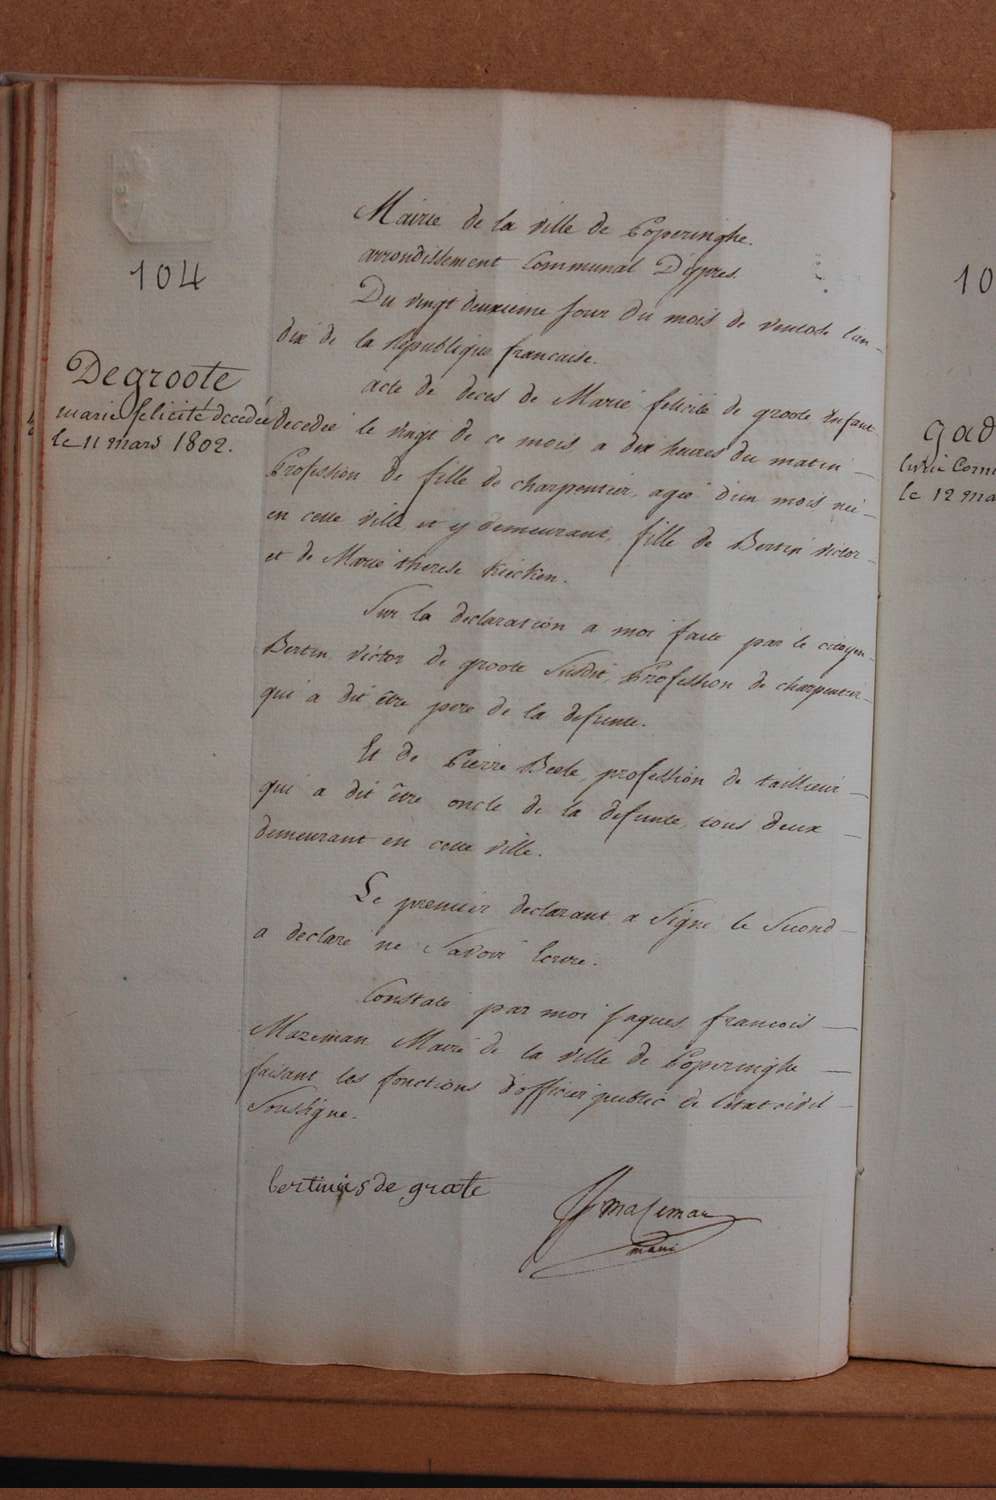 104
Degroote
marie felicité decedée
le 11 mars 1802.
Mairie de la ville de Poperinghe.
arrondissement Communal D'ypres.
Du vingt deuxieme jour du mois de ventose l'an
dix de la Republique francaise.
acte de deces de Marie felicité de groote enfant
decedée le vingt de ce mois, a dix heures du matin
Profession de fille de charpentier, ageé d'un mois neé
en cette ville et y demeurant, fille de Bertin victor
et de Marie therese Kiecken.
Sur la declaration a moi faite par le citoyen
Bertin victor de groote Susdit, Profession de charpentier
qui a dit être pere de la defunte.
Et de Pierre Beele, profession de tailleur
qui a dit être oncle de la defunte, tous deux
demeurant en cette ville.
Le premier declarant a Signé le Second
a declaré ne Savoir Ecrire.
Constaté par moi jaques francois
Mazeman Maire de la ville de Poperinghe
faisant les fonctions d'officier public de l'état civil
Soussigné.
bertinus de groote
JF mazeman
maire
10
gad
livie Corn
le 12 ma